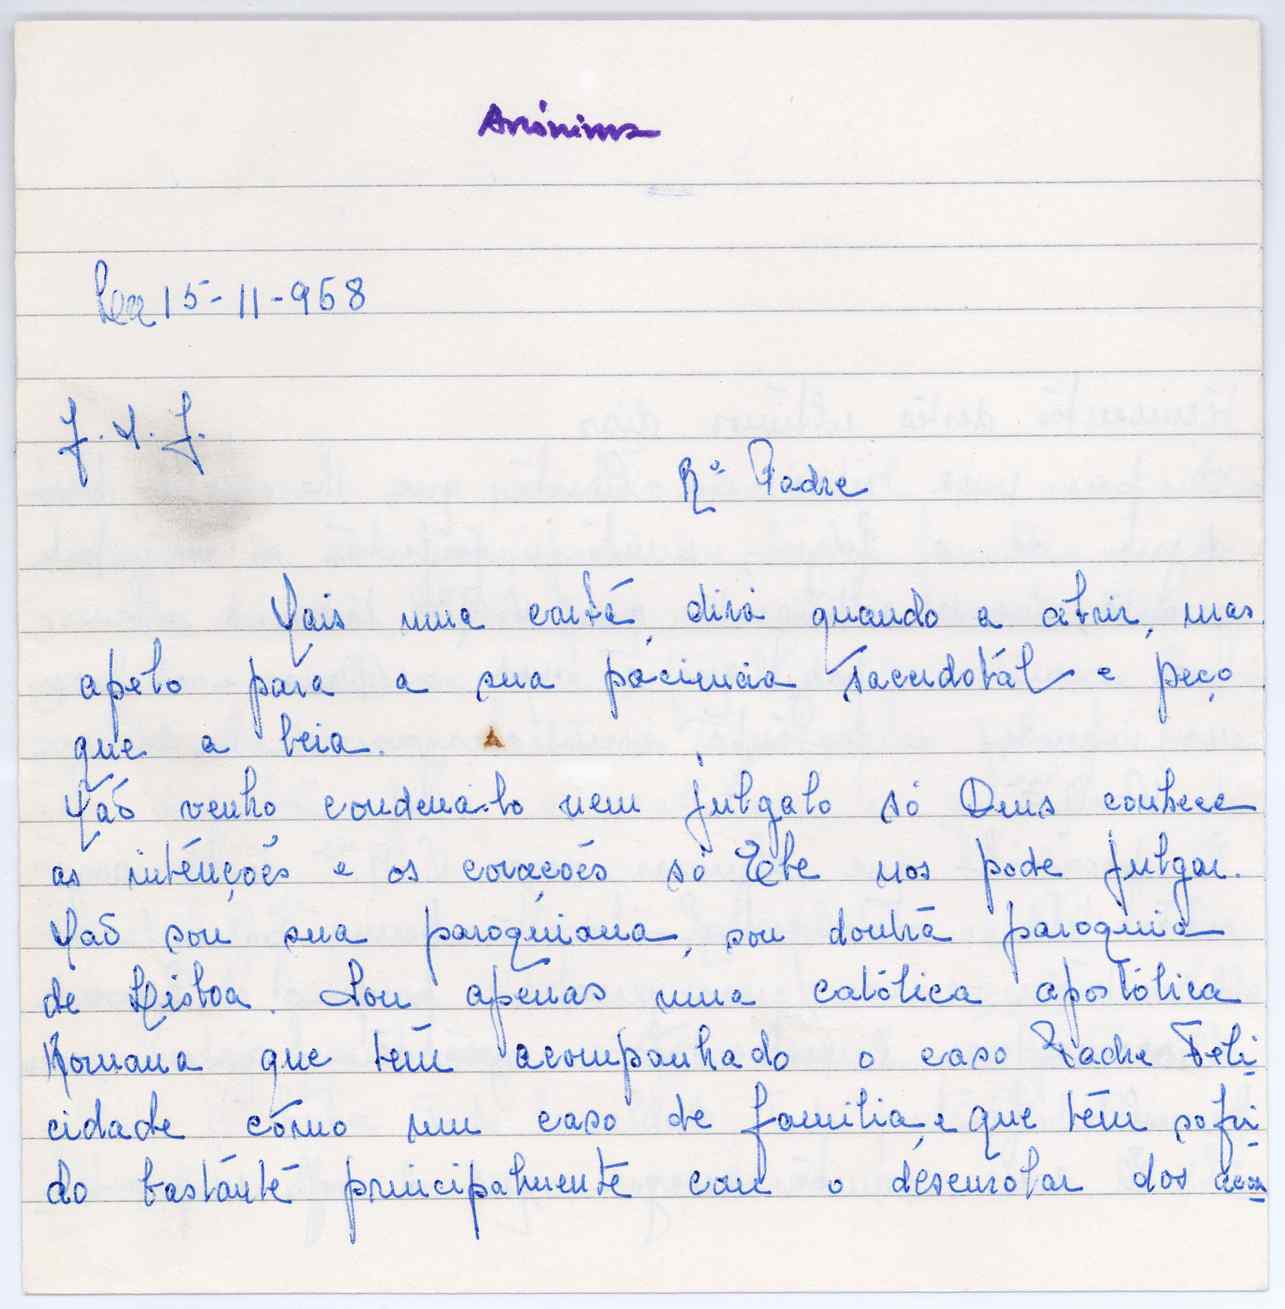 Anónima
Lxa 15-11-968
J. M. J.
Rº Padre
Mais uma carta, dirá quando a abrir, mas
apelo para a sua paciencia sacerdotál e peço
que a leia.
Não venho condena-lo nem julgalo só Deus conhece
as intenções e os corações só Ele nos pode julgar.
Não sou sua paroquiana, sou doutra paroquia
de Lisboa. Sou apenas uma católica apostólica
Romana que têm acompanhado o caso Padre Feli
cidade cômo um caso de familia, e que têm sofri
do bastante principalmente com o desenrolar dos acon